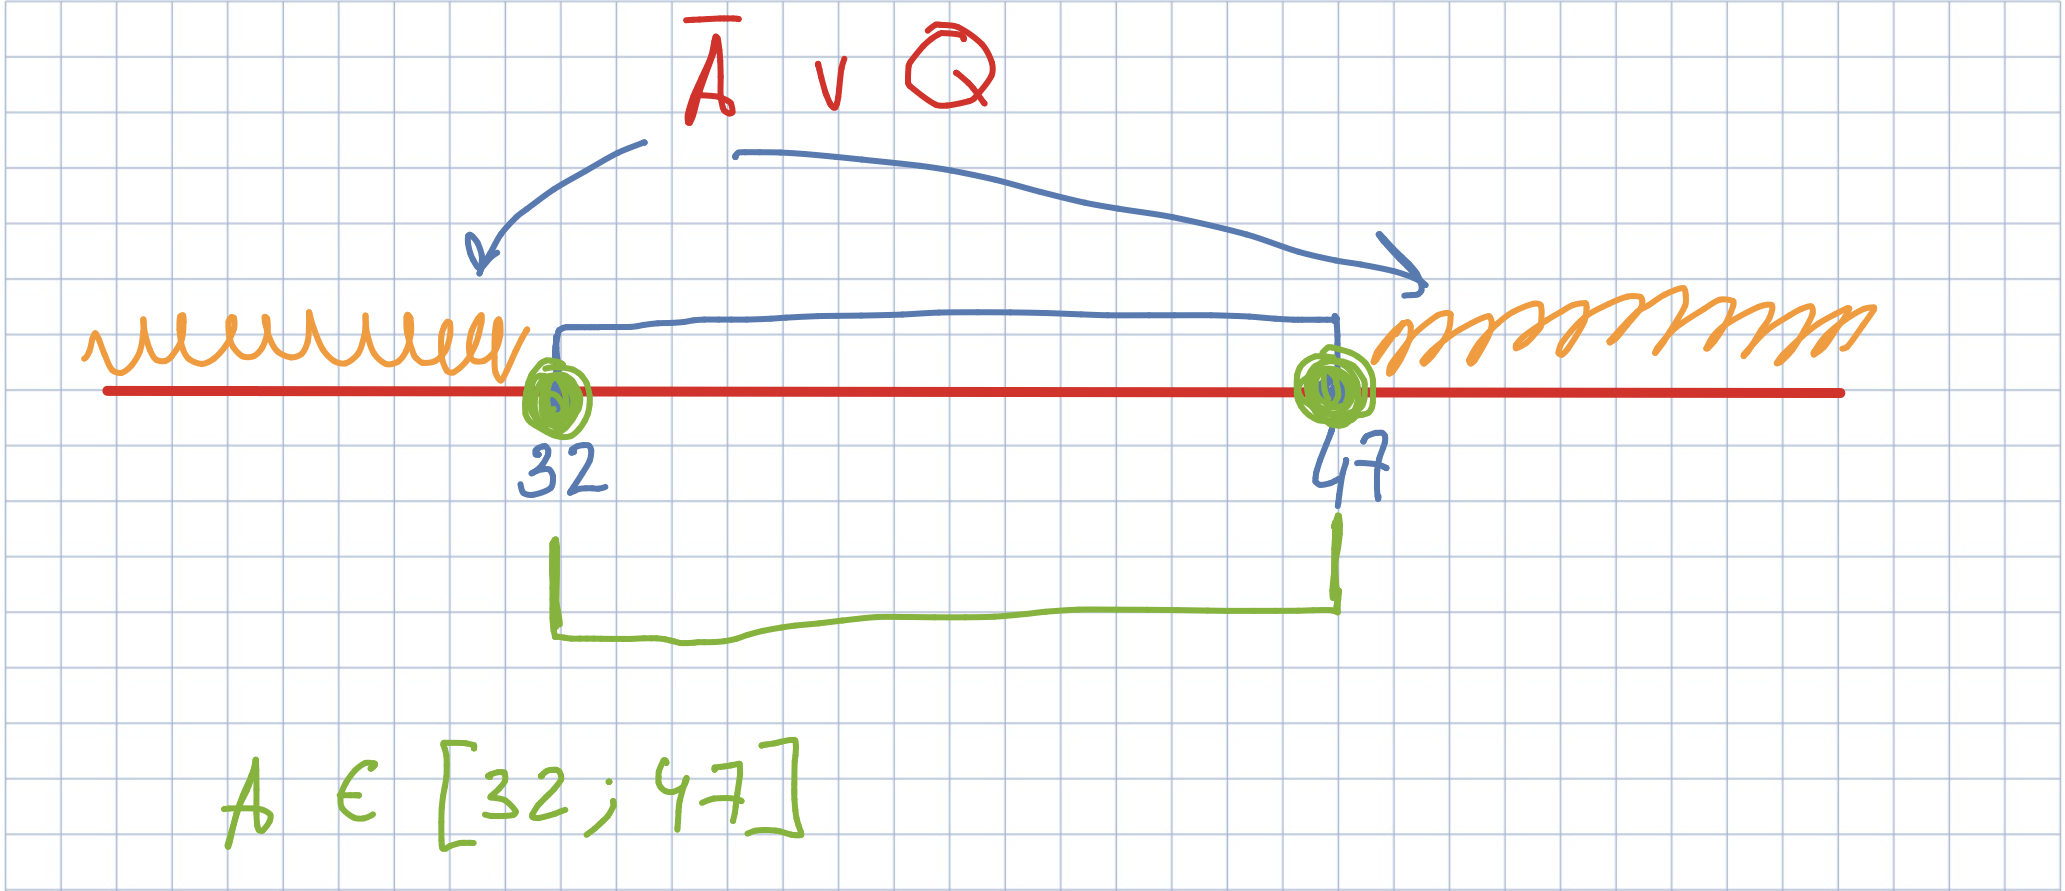 A̅ v Q
32 47
A ∈ [32; 47]